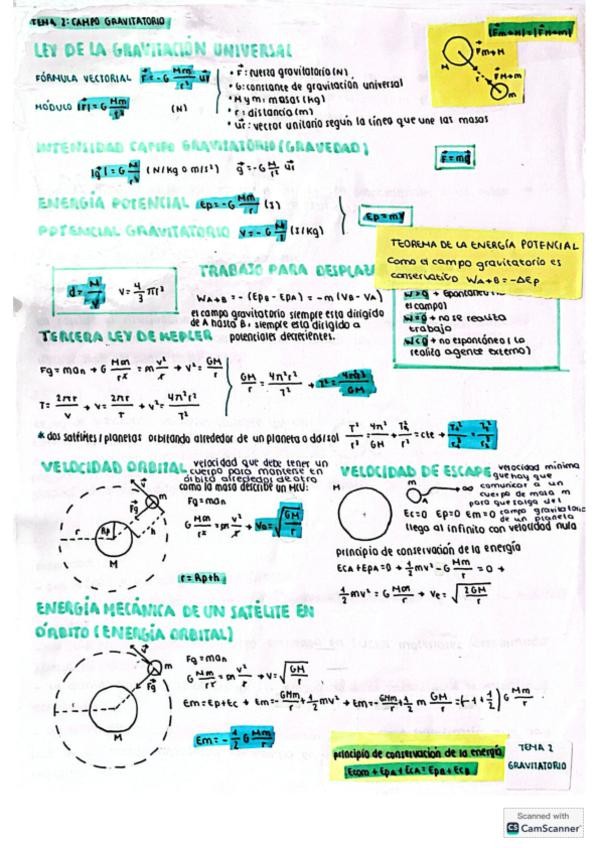 TEMA 2: CAMPO GRAVITATORIO
|F⃗m→M| = |F⃗M→m|
LEY DE LA GRAVITACIÓN UNIVERSAL
M F⃗m→M
F⃗M→m
m
FÓRMULA VECTORIAL F⃗ = -G Mm/r² u⃗r
MÓDULO |F⃗| = G Mm/r² (N)
• F⃗: fuerza gravitatoria (N)
• G: constante de gravitación universal
• M y m: masas (kg)
• r: distancia (m)
• u⃗r: vector unitario según la línea que une las masas
INTENSIDAD CAMPO GRAVITATORIO (GRAVEDAD)
|g⃗| = G M/r² (N/kg o m/s²) g⃗ = -G M/r² u⃗r
F⃗ = mg⃗
ENERGÍA POTENCIAL Ep = -G Mm/r (J)
POTENCIAL GRAVITATORIO V = -G M/r (J/kg)
Ep = mV
TEOREMA DE LA ENERGÍA POTENCIAL
Como el campo gravitatorio es
conservativo WA→B = -ΔEp
d = M/V V = 4/3 πr³
TRABAJO PARA DESPLAZ
WA→B = -(EpB - EpA) = -m(VB - VA)
el campo gravitatorio siempre esta dirigido
de A hasta B, siempre esta dirigido a
potenciales decrecientes.
W>0 → espontáneo (
el campo)
W=0 → no se realiza
trabajo
W<0 → no espontáneo (lo
realiza agente externo)
TERCERA LEY DE KEPLER
Fg = man → G Mm/r² = m v²/r → v² = GM/r
T = 2πr/v → v = 2πr/T → v² = 4π²r²/T²
GM/r = 4π²r²/T² → T² = 4π²r³/GM
* dos satélites/planetas orbitando alrededor de un planeta o del sol T²/r³ = 4π²/GM → = cte →
VELOCIDAD ORBITAL velocidad que debe tener un
cuerpo para mantenerte en
órbita alrededor de otro
como la masa describe un MCU:
Fg = man
G Mm/r² = m v²/r → vo = √(GM/r)
r = Rp + h
v⃗ m F⃗g r Rp h M
VELOCIDAD DE ESCAPE velocidad mínima
que hay que
comunicar a un
cuerpo de masa m
para que salga del
campo gravitatorio
de un planeta
M m ∞
Ec=0 Ep=0 Em=0
llega al infinito con velocidad nula
principio de conservación de la energía
EcA + EpA = 0 → 1/2 mv² - G Mm/r = 0 →
1/2 mv² = G Mm/r → ve = √(2GM/r)
ENERGÍA MECÁNICA DE UN SATÉLITE EN
ÓRBITO (ENERGÍA ORBITAL)
v⃗ m F⃗g r M
Fg = man
G Mm/r² = m v²/r → v = √(GM/r)
Em = Ep + Ec → Em = -GMm/r + 1/2 mv² → Em = -GMm/r + 1/2 m GM/r = (-1 + 1/2) G Mm/r
Em = -1/2 G Mm/r
principio de conservación de la energía
Ecom + EpA + EcA = EpB + EcB
TEMA 2
GRAVITATORIO
Scanned with
CS CamScanner